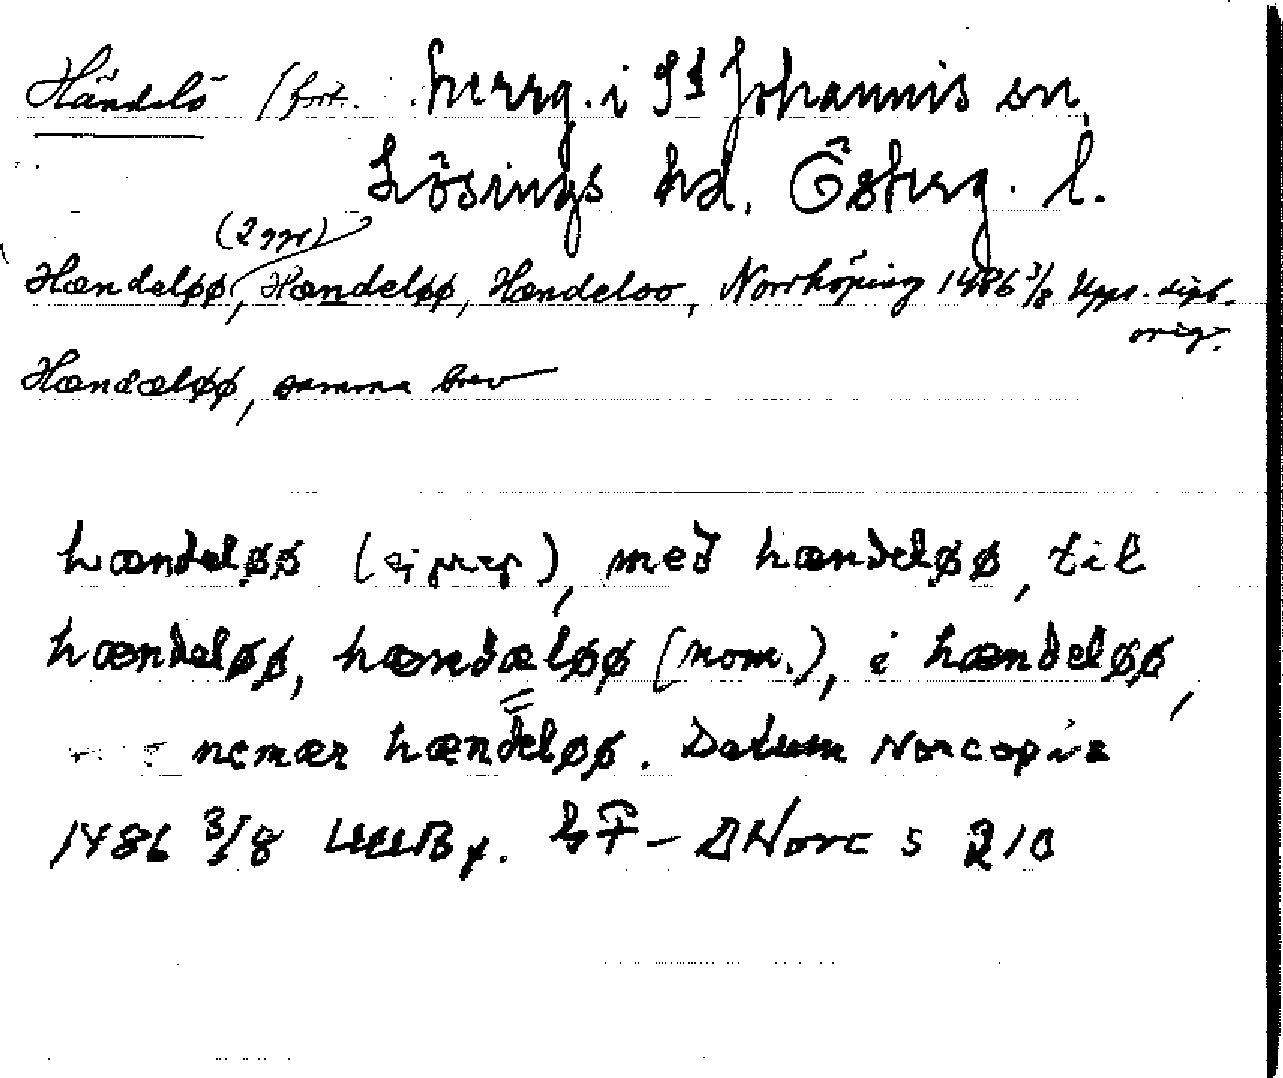 Händelö (fort. herrg. i St Johannis sn,
Lösings hd. Österg. l.
(2 ggr)
Hændeløø, Hændeløø, Hændeloo, Norrköping 1486 3/8 Upps. dipl. orig.
Hændæløø, samma brev
hændeløø (ej prep), med hændeløø, til
hændeløø, hændæløø (nom.), i hændeløø,
nemær hændeløø. Datum Norcopie
1486 3/8 UUB p. hF – DNorc s 210